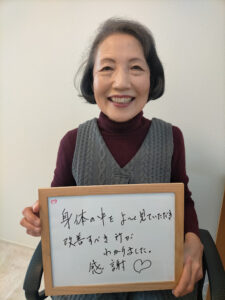 身体の中を よ〜く見ていただき
改善すべき所が
わかりました。
感謝♡